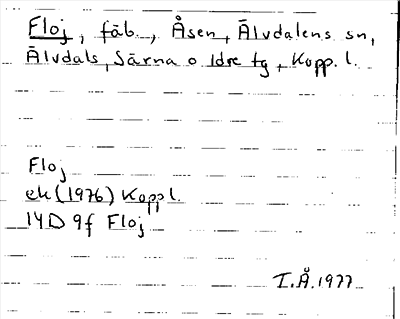 Floj, fäb., Åsen, Älvdalens sn,
Älvdals, Särna o Idre tg, Kopp. l.
Floj
ek (1976) Kopp l.
14D 9f Floj
I.Å. 1977